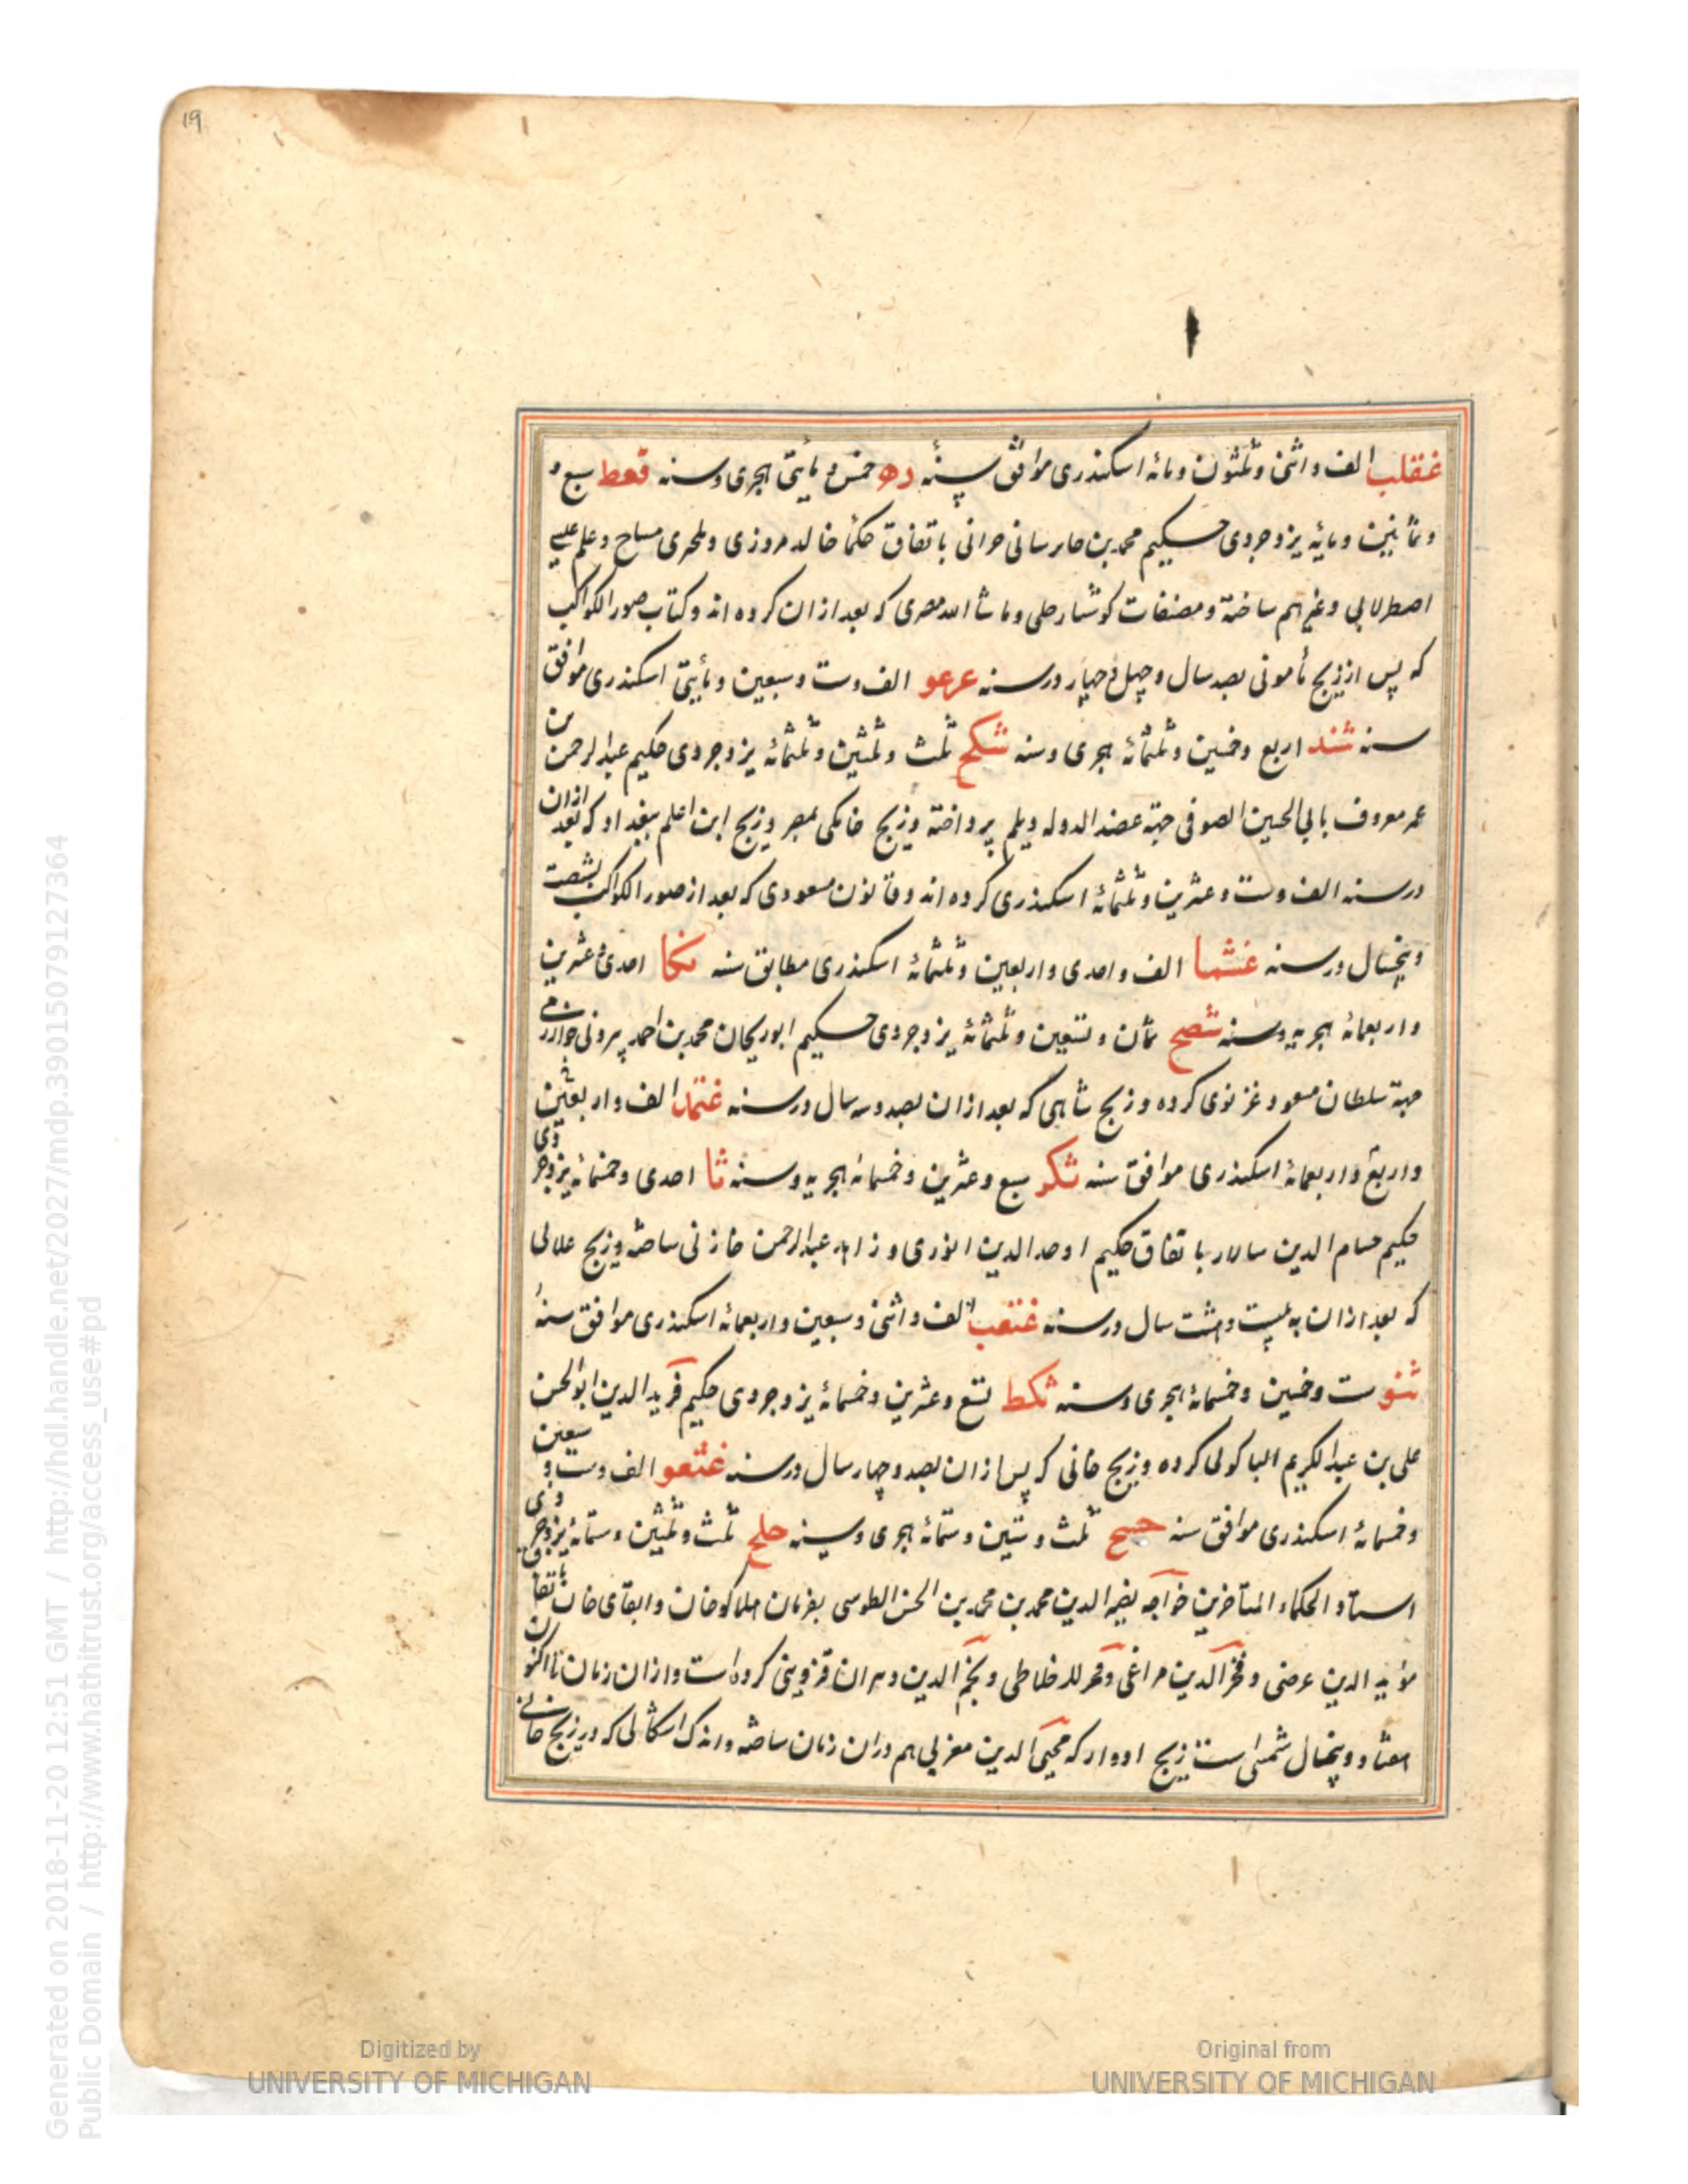 19
غقلب الف و اثنی و ثلثون و مائه اسکندری موافق سنهٔ ده خمس و مأیتی هجری و سنه قعط سبع و
و ثمانین و مایهٔ یزدجردی حکیم محمد بن جابر سانی حرانی باتفاق حکما خالد مروزی و مساح و علی
اصطرلابی و غیرهم ساخته و مصنفات کوشیار جیلی و ما شا الله مصری که بعد از ان کرده اند و کتاب صور الکواکب
که پس از زیج مأمونی بصد سال و چهل و چهار در سنه عرعو الف و ست و سبعین و مأیتی اسکندری موافق
سنه شند اربع و خمسین و ثلثمائهٔ هجری و سنه شکح ثلث و ثلثین و ثلثمائهٔ یزدجردی حکیم عبدالرحمن بن
عمر معروف بابی الحسین الصوفی جهة عضد الدوله دیلم پرداخته و زیج حاکمی بمصر و زیج ابن اعلم ببغداد که بعد ازان
در سنه الف و ست و عشرین و ثلثمائهٔ اسکندری کرده اند و قانون مسعودی که بعد از صور الکواکب بشصت
و پنجسال در سنه غشما الف و احدی و اربعین و ثلثمائهٔ اسکندری مطابق سنه تکا احدی و عشرین
و اربعمائهٔ هجریه و سنه شصح ثمان و تسعین و ثلثمائهٔ یزدجردی حکیم ابوریحان محمد بن احمد بیرونی خوارزمی
جهة سلطان مسعود غزنوی کرده و زیج شاهی که بعد از ان بصد و سه سال در سنه غتمد الف و اربعین
و اربع و اربعمائهٔ اسکندری موافق سنه ثکز سبع و عشرین و خمسمائه هجریه و سنه ثا احدی و خمسمائه یزدجردی
حکیم حسام الدین سالار باتفاق حکیم اوحد الدین انوری و زاهد عبدالرحمن خازنی ساخته و زیج علائی
که بعد از ان به بیست و هشت سال در سنه غتعب الف و اثنی و سبعین و اربعمائهٔ اسکندری موافق سنهٔ
ثنو ست و خمسین و خمسمائهٔ هجری و سنه ثکط تسع و عشرین و خمسمائهٔ یزدجردی حکیم فرید الدین ابوالحسن
علی بن عبدالکریم الباکوئی کرده و زیج خانی که پس از ان بصد و چهار سال در سنه غثعو الف و ست و سبعین
و خمسمائهٔ اسکندری موافق سنه خسح ثلث و ستین و ستمائهٔ هجری و سنه خلح ثلث و ثلثین و ستمائهٔ یزدجردی
استاد الحکماء المتأخرین خواجه نصیر الدین محمد بن محمد بن الحسن الطوسی بفرمان هلاکوخان و ابقای خان باتفاق
مؤید الدین عرضی و فخر الدین مراغی و فخر خلاطی و نجم الدین دبیران قزوینی کرده است و از ان زمان تا اکنون
هفتاد و پنجسال شمسی است زیج ادوار که محیی الدین مغربی هم دران زمان ساخته و اندک اشکالی که در زیج خانی
Digitized by
UNIVERSITY OF MICHIGAN
Original from
UNIVERSITY OF MICHIGAN
Generated on 2018-11-20 12:51 GMT / http://hdl.handle.net/2027/mdp.39015079127364
Public Domain / http://www.hathitrust.org/access_use#pd